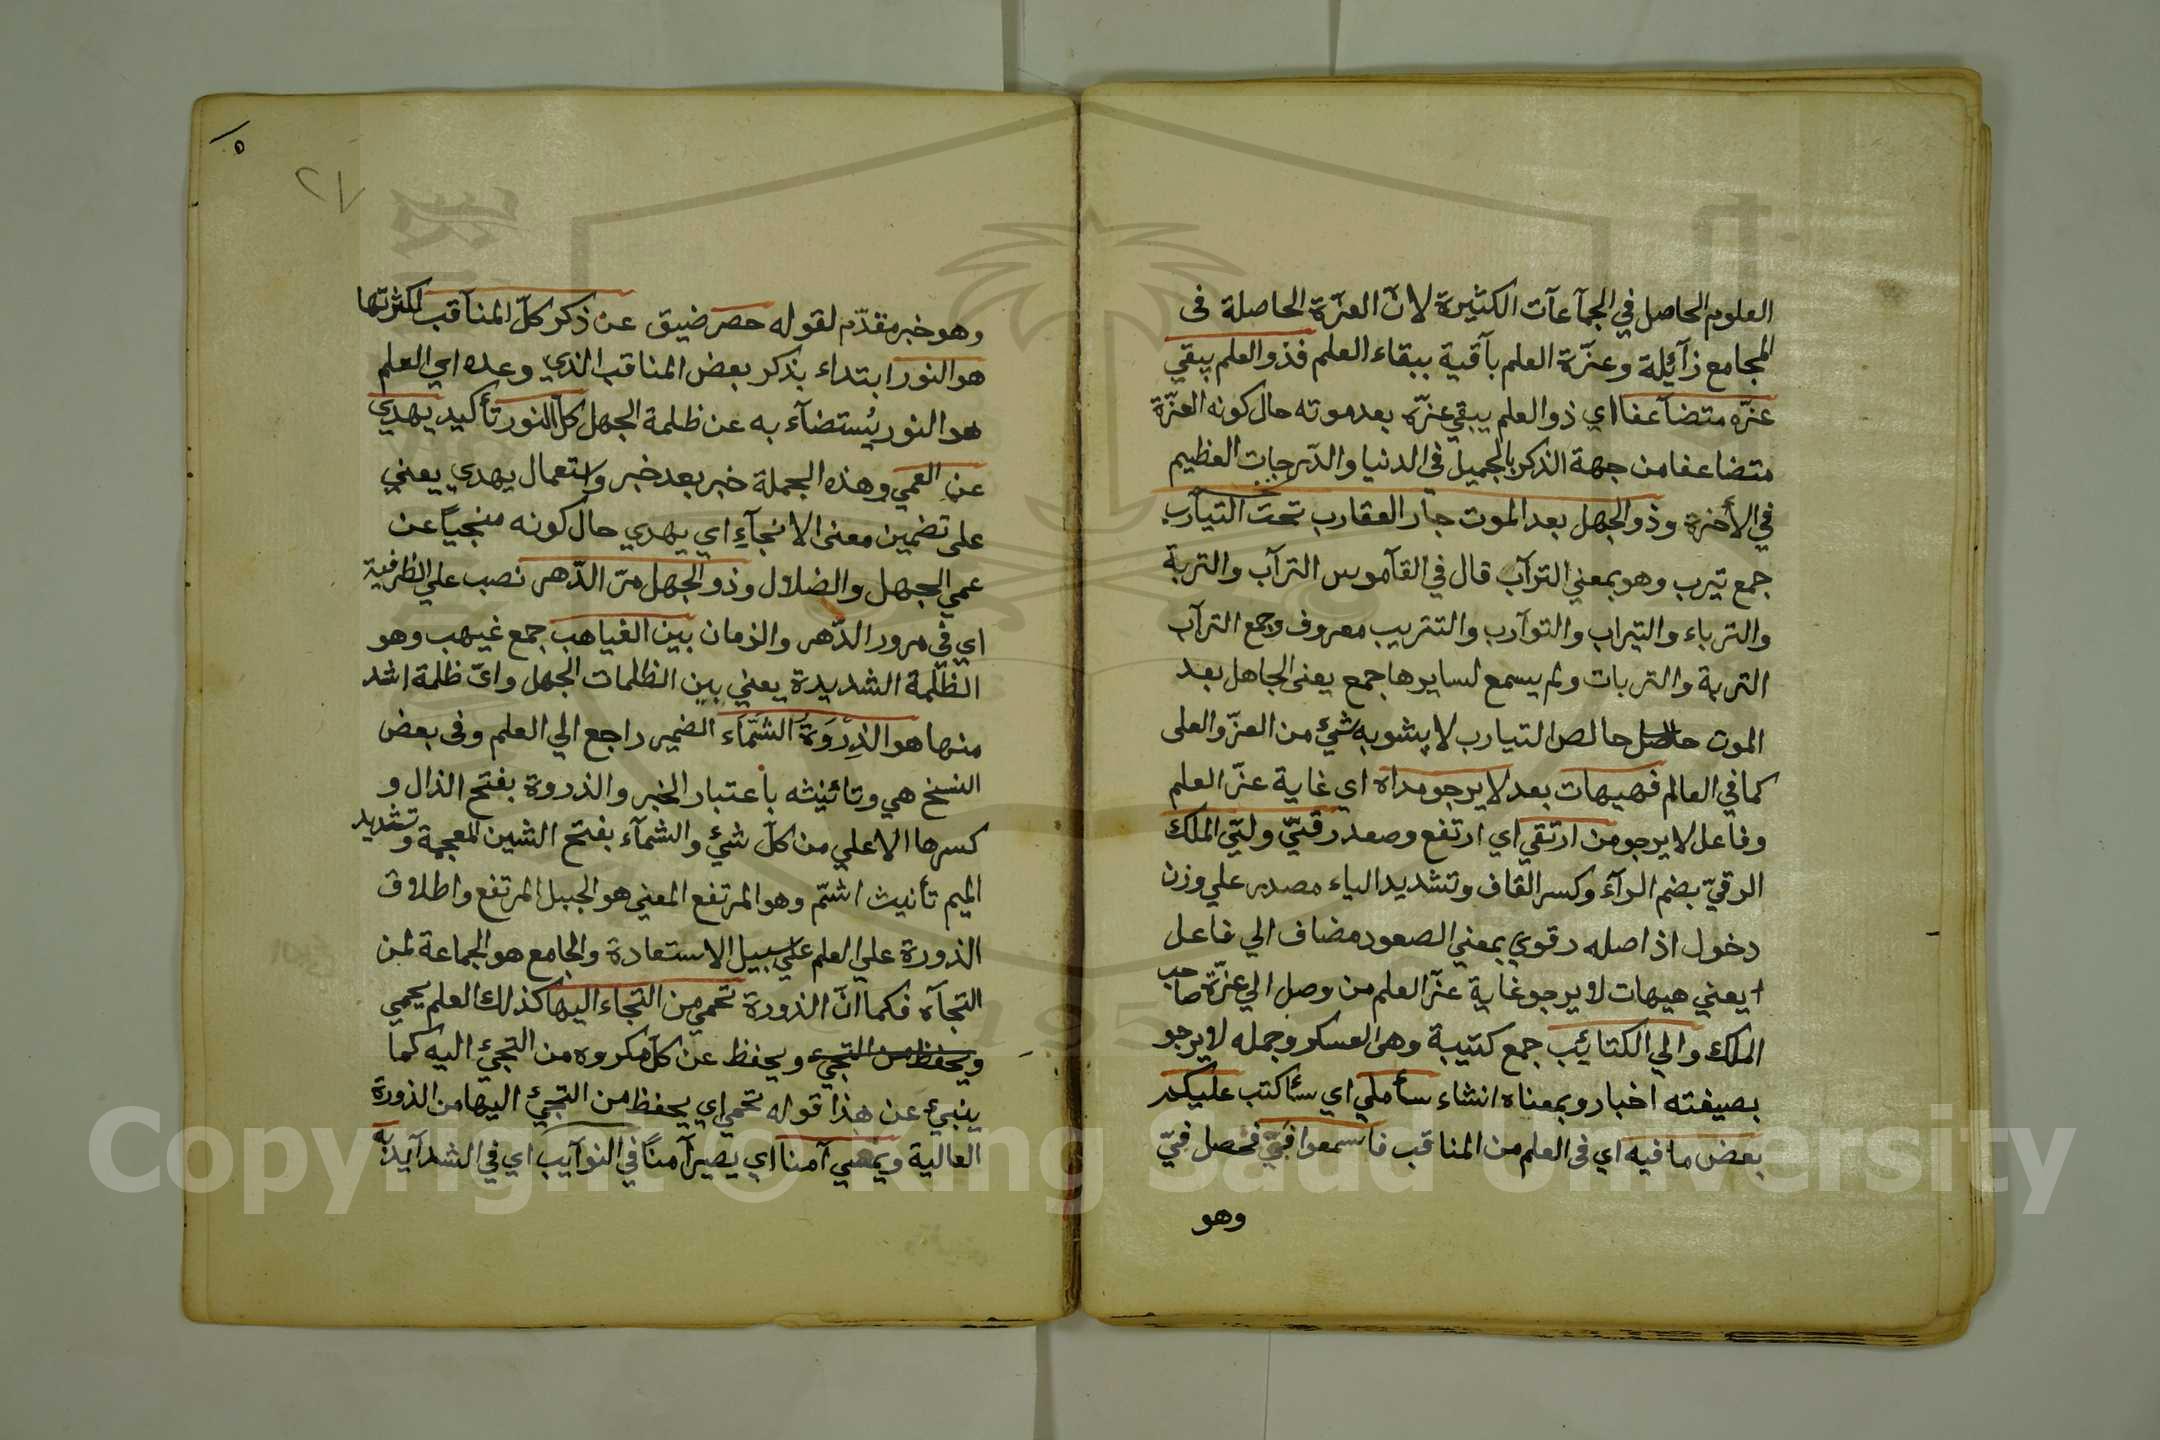 العلوم الحاصل في الجمآعآت الكثيرة لانّ العزّة الحاصلة فى
المجامع زآئيلة وعزّة العلم بآقية ببقاء العلم فذو العلم يبقي
عزّه متضآعفا اي ذو العلم يبقي عزّه بعد موته حال كونه العزّة
متضاعفا من جهة الذكر بالجميل فى الدنيا والدّرجات العظيم
في الأخرة وذو الجهل بعد الموت جار العقارب تحت التيآرب
جمع تيرب وهو بمعني الترآب قال في القآموس الترآب والتربة
والترباء والتيراب والتوآرب والتتريب معروف وجمع الترآب
التربة والتربات ولم يسمع لسايرها جمع يعنى الجاهل بعد
الموت حالص التيارب لا يشوبه شيء من العزّ والعلى
كما في العالم فهيهات بعد لا يرجو مداه اي غاية عزّ العلم
وفاعل لا يرجو من ارتقي اي ارتفع وصعد رقيّ ولتي الملك
الرقيّ بضم الرآء وكسر القاف وتشديد الياء مصدر علي وزن
دخول اذ اصله رقوي بمعني الصعود مضاف الي فاعل
يعني هيهات لا يرجو غاية عزّ العلم من وصل الي عزّة صاحب
الملك والي الكتائب جمع كتيبة وهى العسكر وجمله لا يرجو
بصيغته اخبار وبمعناه انشاء سأملي اي سأكتب عليكم
بعض ما فيه اي فى العلم من المناقب فاسمعوا فبيّ فحصل فيّ
وهو
٥
٢٧
وهو خبر مقدّم لقوله حصر ضيق عن ذكر كلّ المنآقب لكثرتها
هو النور ابتداء بذكر بعض المناقب الذي وعده اي العلم
هو النور يُستضآء به عن ظلمة الجهل كلّ النور تأكيد يهدي
عن العمي وهذه الجملة خبر بعد خبر واستعمال يهدي يعني
على تضمين معنى الانجآءِ اي يهدي حال كونه منجياً عن
عمي الجهل والضلال وذو الجهل مرّ الدّهر نصب علي الظرفية
اي في مرور الدّهر والزمان بين الغياهب جمع غيهب وهو
الظلمة الشديدة يعني بين الظلمات الجهل وايّ ظلمة اشد
منها هو الذِرْوَةُ الشَمّاء الضمير راجع الي العلم وفى بعض
النسخ هي وتائنيثه باعتبار الخبر والذروة بفتح الذال و
كسرها الاعلي من كلّ شيء والشمآء بفتح الشين المعجمة وتشديد
الميم تأنيث اشمّ وهو المرتفع المعني هو الجبل المرتفع واطلاق
الذورة علي العلم علي سبيل الاستعادة والجامع هو الجماعة لمن
التجآه فكما انّ الذورة تحمي من التجاء اليها كذلك العلم يحمي
ويحفظ من التجيء ويحفظ عن كلّ مكروه من التجيء اليه كما
ينبيء عن هذا قوله تحمي اي يحفظ من التجيء اليها من الذورة
العالية ويمشي آمنا اي يصير آمناً في النوآيب اي في الشدآيد به
Copyright © King Saud University